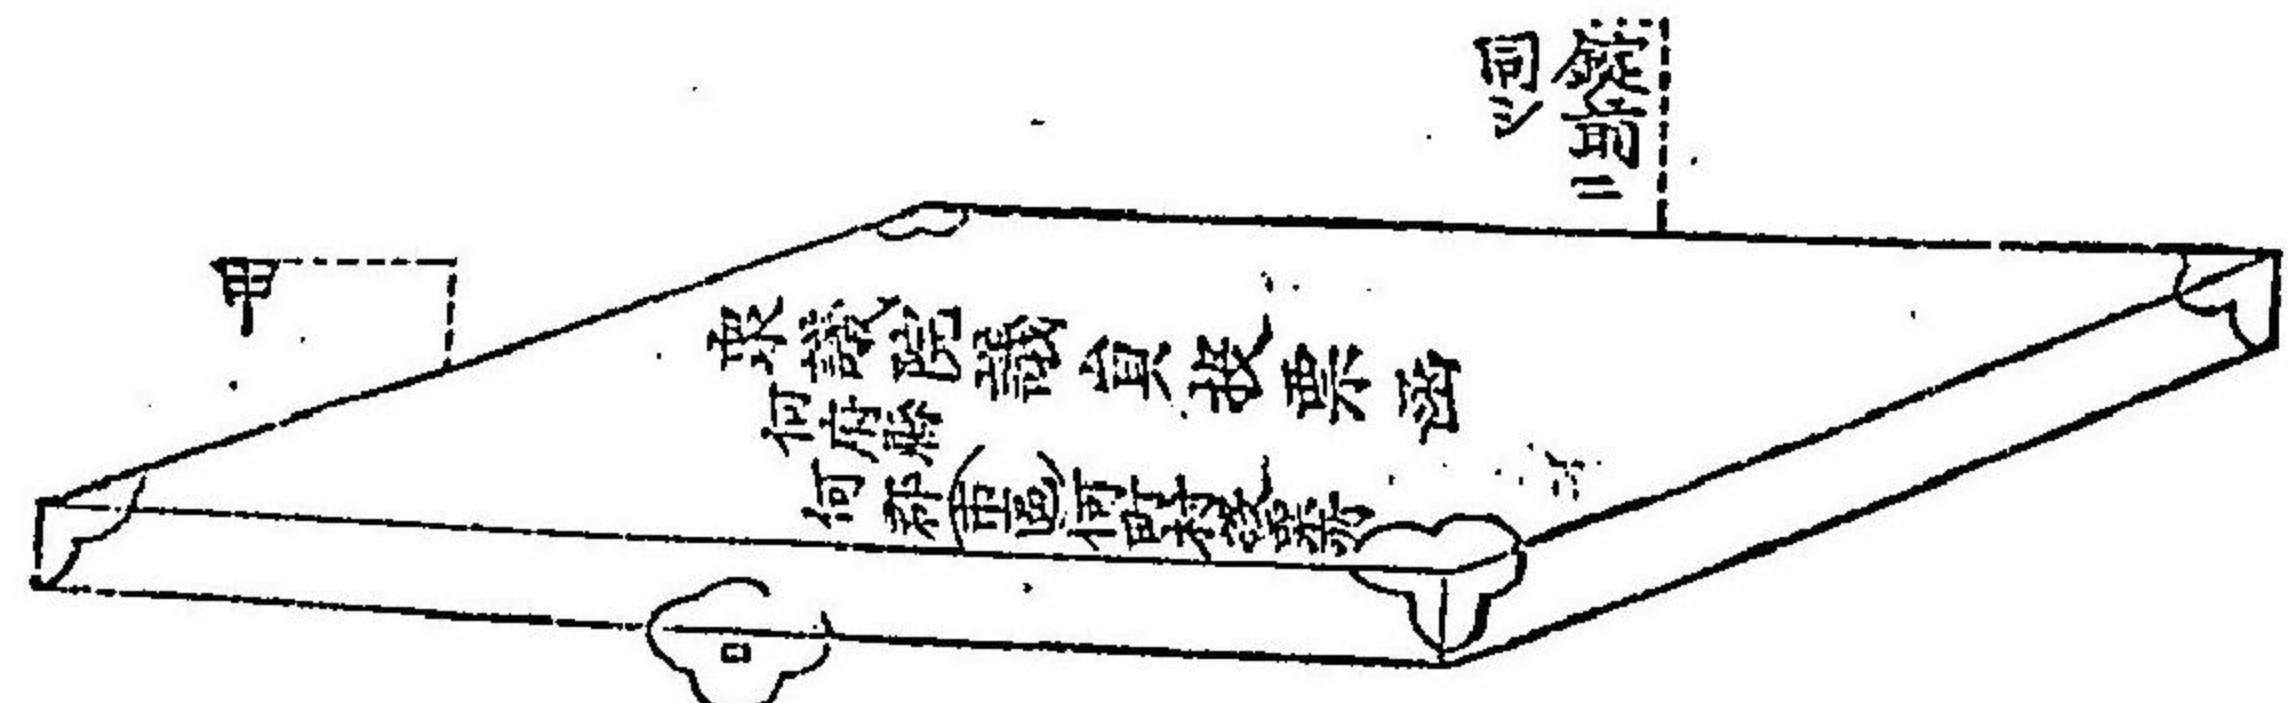 錠前ニ
同シ
甲
衆議院議員投票函
何府縣
何郡(市區)何町村投票所